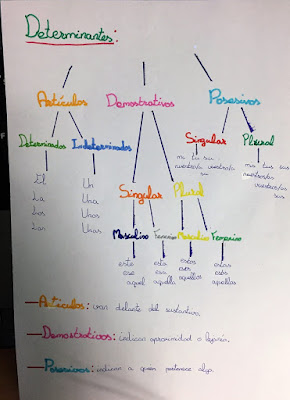 Determinantes:
Artículos Demostrativos Posesivos
Determinados Indeterminados
Singular Plural
mi tu su
mis tus sus
nuestro/a vuestro/a
su
nuestros/as
vuestros/as
sus
El Un
La Una
Los Unos
Las Unas
Singular Plural
Masculino Femenino Masculino Femenino
este esta estos estas
ese esa esos esas
aquel aquella aquellos aquellas
Artículos: van delante del sustantivo.
Demostrativos: indican aproximidad o lejanía.
Posesivos: indican a quien pertenece algo.